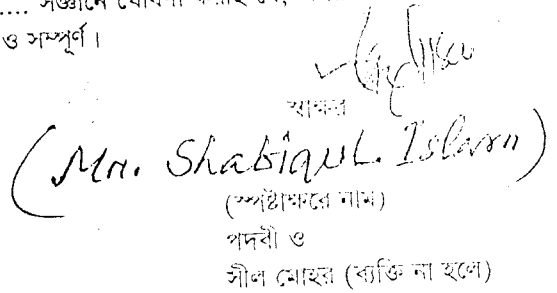 .... সজ্ঞানে ঘোষণা করছি যে,
ও সম্পূর্ণ।
স্বাক্ষর
(Mr. Shabiqul. Islam)
(স্পষ্টাক্ষরে নাম)
পদবী ও
সীল মোহর (ব্যক্তি না হলে)